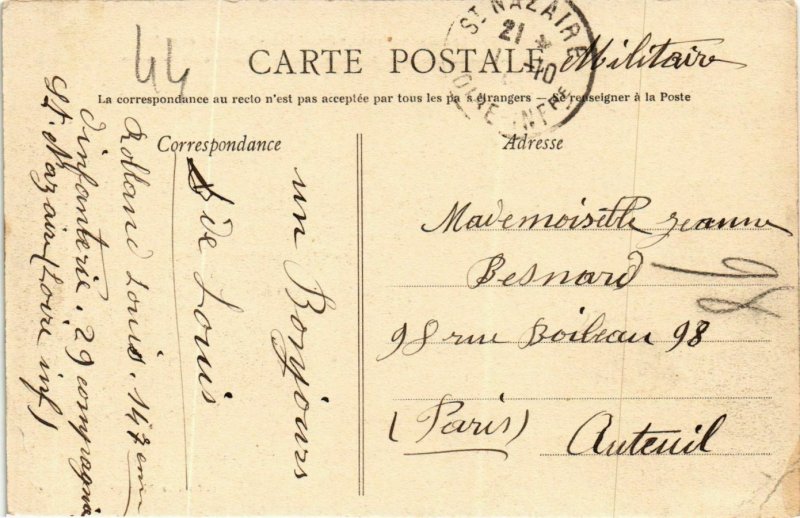 44
CARTE POSTALE Militaire
ST NAZAIRE
21 *
10
LOIRE INFRE
La correspondance au recto n'est pas acceptée par tous les pays étrangers — Se renseigner à la Poste
Correspondance
Adresse
un Bonjours
de Louis
Rolland Louis. 147 em
d'infanterie. 29 compagnie
St. Nazaire (Loire inf)
Mademoiselle Jeanne
Besnard
98 rue Boileau 98
(Paris) Auteuil